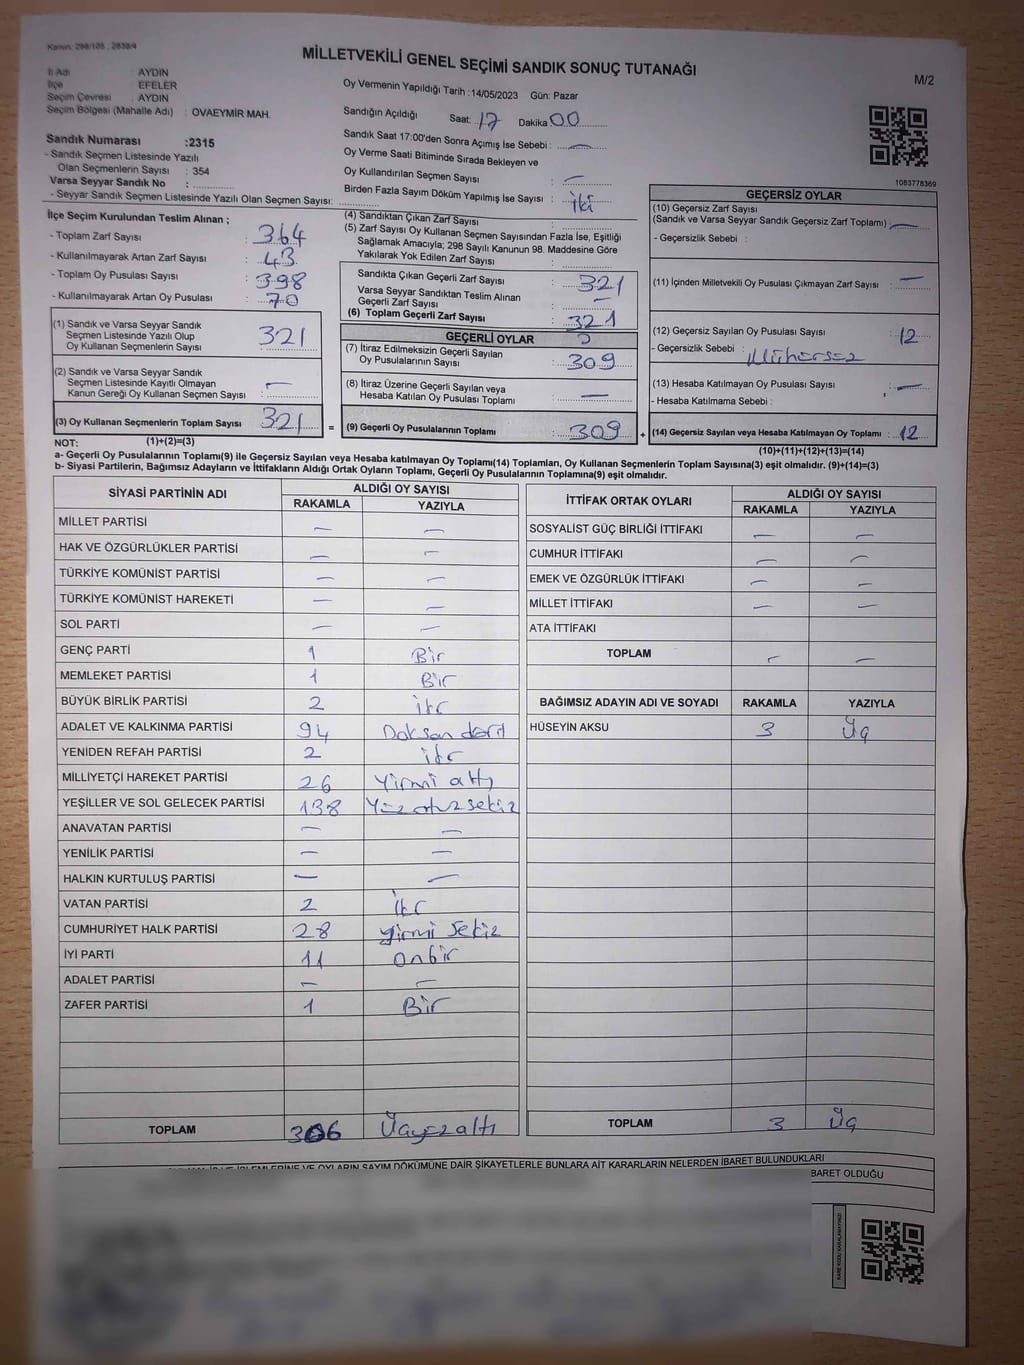 Kanun: 298/105 , 2839/4
MİLLETVEKİLİ GENEL SEÇİMİ SANDIK SONUÇ TUTANAĞI
M/2
İl Adı : AYDIN
İlçe : EFELER
Seçim Çevresi : AYDIN
Seçim Bölgesi (Mahalle Adı) : OVAEYMİR MAH.
Oy Vermenin Yapıldığı Tarih :14/05/2023 Gün: Pazar
Sandığın Açıldığı Saat: 17 Dakika 00
Sandık Saat 17:00'den Sonra Açımış İse Sebebi : —
Oy Verme Saati Bitiminde Sırada Bekleyen ve
Oy Kullandırılan Seçmen Sayısı : —
Birden Fazla Sayım Döküm Yapılmış İse Sayısı : İki
Sandık Numarası :2315
- Sandık Seçmen Listesinde Yazılı
Olan Seçmenlerin Sayısı : 354
Varsa Seyyar Sandık No :
- Seyyar Sandık Seçmen Listesinde Yazılı Olan Seçmen Sayısı:
1083778369
İlçe Seçim Kurulundan Teslim Alınan ;
- Toplam Zarf Sayısı : 364
- Kullanılmayarak Artan Zarf Sayısı : 43
- Toplam Oy Pusulası Sayısı : 398
- Kullanılmayarak Artan Oy Pusulası : 70
(1) Sandık ve Varsa Seyyar Sandık
Seçmen Listesinde Yazılı Olup
Oy Kullanan Seçmenlerin Sayısı : 321
(2) Sandık ve Varsa Seyyar Sandık
Seçmen Listesinde Kayıtlı Olmayan
Kanun Gereği Oy Kullanan Seçmen Sayısı : —
(3) Oy Kullanan Seçmenlerin Toplam Sayısı : 321 =
(4) Sandıktan Çıkan Zarf Sayısı :
(5) Zarf Sayısı Oy Kullanan Seçmen Sayısından Fazla İse, Eşitliği
Sağlamak Amacıyla; 298 Sayılı Kanunun 98. Maddesine Göre
Yakılarak Yok Edilen Zarf Sayısı :
Sandıkta Çıkan Geçerli Zarf Sayısı : 321
Varsa Seyyar Sandıktan Teslim Alınan
Geçerli Zarf Sayısı : —
(6) Toplam Geçerli Zarf Sayısı : 321
GEÇERLİ OYLAR
(7) İtiraz Edilmeksizin Geçerli Sayılan
Oy Pusulalarının Sayısı : 309
(8) İtiraz Üzerine Geçerli Sayılan veya
Hesaba Katılan Oy Pusulası Toplamı : —
(9) Geçerli Oy Pusulalarının Toplamı : 309 +
GEÇERSİZ OYLAR
(10) Geçersiz Zarf Sayısı
(Sandık ve Varsa Seyyar Sandık Geçersiz Zarf Toplamı) : —
- Geçersizlik Sebebi :
(11) İçinden Milletvekili Oy Pusulası Çıkmayan Zarf Sayısı : —
(12) Geçersiz Sayılan Oy Pusulası Sayısı : 12
- Geçersizlik Sebebi : Mühürsüz
(13) Hesaba Katılmayan Oy Pusulası Sayısı : —
- Hesaba Katılmama Sebebi :
(14) Geçersiz Sayılan veya Hesaba Katılmayan Oy Toplamı : 12
NOT: (1)+(2)=(3)
(10)+(11)+(12)+(13)=(14)
a- Geçerli Oy Pusulalarının Toplamı(9) ile Geçersiz Sayılan veya Hesaba katılmayan Oy Toplamı(14) Toplamları, Oy Kullanan Seçmenlerin Toplam Sayısına(3) eşit olmalıdır. (9)+(14)=(3)
b- Siyasi Partilerin, Bağımsız Adayların ve İttifakların Aldığı Ortak Oyların Toplamı, Geçerli Oy Pusulalarının Toplamına(9) eşit olmalıdır.
SİYASİ PARTİNİN ADI ALDIĞI OY SAYISI
RAKAMLA YAZIYLA
MİLLET PARTİSİ — —
HAK VE ÖZGÜRLÜKLER PARTİSİ — —
TÜRKİYE KOMÜNİST PARTİSİ — —
TÜRKİYE KOMÜNİST HAREKETİ — —
SOL PARTİ — —
GENÇ PARTİ 1 Bir
MEMLEKET PARTİSİ 1 Bir
BÜYÜK BİRLİK PARTİSİ 2 iki
ADALET VE KALKINMA PARTİSİ 94 Doksan dört
YENİDEN REFAH PARTİSİ 2 iki
MİLLİYETÇİ HAREKET PARTİSİ 26 Yirmi altı
YEŞİLLER VE SOL GELECEK PARTİSİ 138 Yüz otuz sekiz
ANAVATAN PARTİSİ — —
YENİLİK PARTİSİ — —
HALKIN KURTULUŞ PARTİSİ — —
VATAN PARTİSİ 2 İki
CUMHURİYET HALK PARTİSİ 28 yirmi sekiz
İYİ PARTİ 11 onbir
ADALET PARTİSİ — —
ZAFER PARTİSİ 1 Bir
TOPLAM 306 Üçyüzaltı
İTTİFAK ORTAK OYLARI ALDIĞI OY SAYISI
RAKAMLA YAZIYLA
SOSYALIST GÜÇ BİRLİĞİ İTTİFAKI — —
CUMHUR İTTİFAKI — —
EMEK VE ÖZGÜRLÜK İTTİFAKI — —
MİLLET İTTİFAKI — —
ATA İTTİFAKI
TOPLAM — —
BAĞIMSIZ ADAYIN ADI VE SOYADI RAKAMLA YAZIYLA
HÜSEYİN AKSU 3 Üç
TOPLAM 3 Üç
İŞLEMLERİNE VE OYLARIN SAYIM DÖKÜMÜNE DAİR ŞİKAYETLERLE BUNLARA AİT KARARLARIN NELERDEN İBARET BULUNDUKLARI
BARET OLDUĞU
KARE KODU KARALAMAYINIZ!